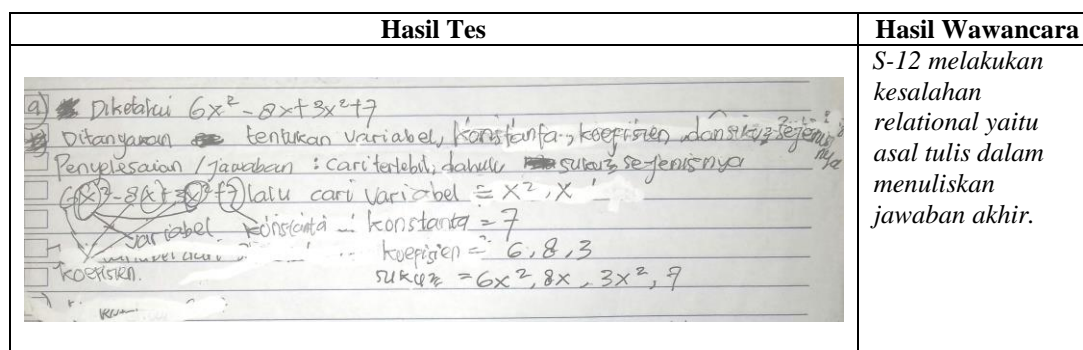 Hasil Tes
Hasil Wawancara
a) Diketahui 6x² - 8x + 3x² + 7
Ditanyakan tentukan variabel, konstanta, koefisien, dan suku2 sejenis nya
Penyelesaian / jawaban : cari terlebih dahulu suku2 sejenisnya
6x² - 8x + 3x² + 7 lalu cari variabel = x², x
variabel konstanta konstanta = 7
koefisien = 6, 8, 3
koefisien.
suku2 = 6x², 8x, 3x², 7
S-12 melakukan
kesalahan
relational yaitu
asal tulis dalam
menuliskan
jawaban akhir.